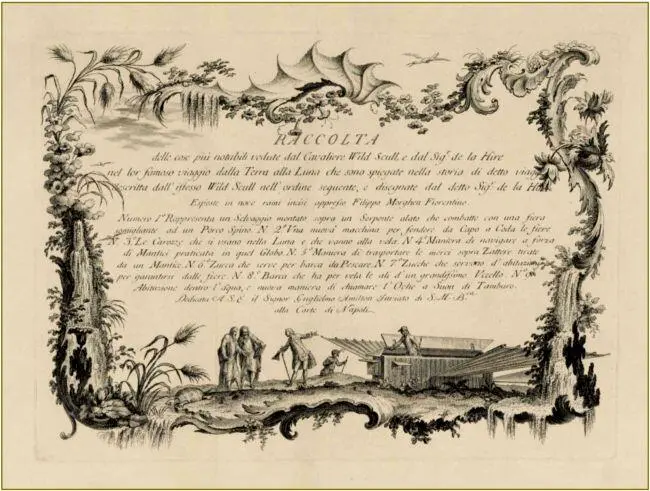 RACCOLTA
delle cose più notabili vedute dal Cavaliere Wild Scull, e dal Sigr. de la Hire
nel lor famoso viaggio dalla Terra alla Luna che sono spiegate nella storia di detto viaggio
descritta dall' istesso Wild Scull nell' ordine seguente, e disegnate dal detto Sigr. de la Hire
Esposte in nove rami incisi appresso Filippo Morghen Fiorentino.
Numero 1º Rappresenta un Selvaggio montato sopra un Serpente alato che combatte con una fiera
somigliante ad un Porco Spino. N. 2º Una nuova macchina per fendere da Capo a Coda le fiere
N. 3º Le Carozze che si usano nella Luna e che vanno alla vela. N. 4º Maniera di navigare a forza
di Mantici praticata in quel Globo. N. 5º Maniera di trasportare le merci sopra Zattere tirate
da un Mantice. N. 6º Zucca che serve per barca da Pescare. N. 7º Zucche che servono d'abitazione
per garantirsi dalle fiere. N. 8º Barca che ha per vela le ali d'un grandissimo Vccello. N. 9º
Abitazione dentro l'Aqua, e nuova maniera di chiamare l'Oche a Suon di Tamburo.
Dedicata A. S. E. il Signor Guglielmo Amilton Inviato di S. M. B.
alla Corte di Napoli.